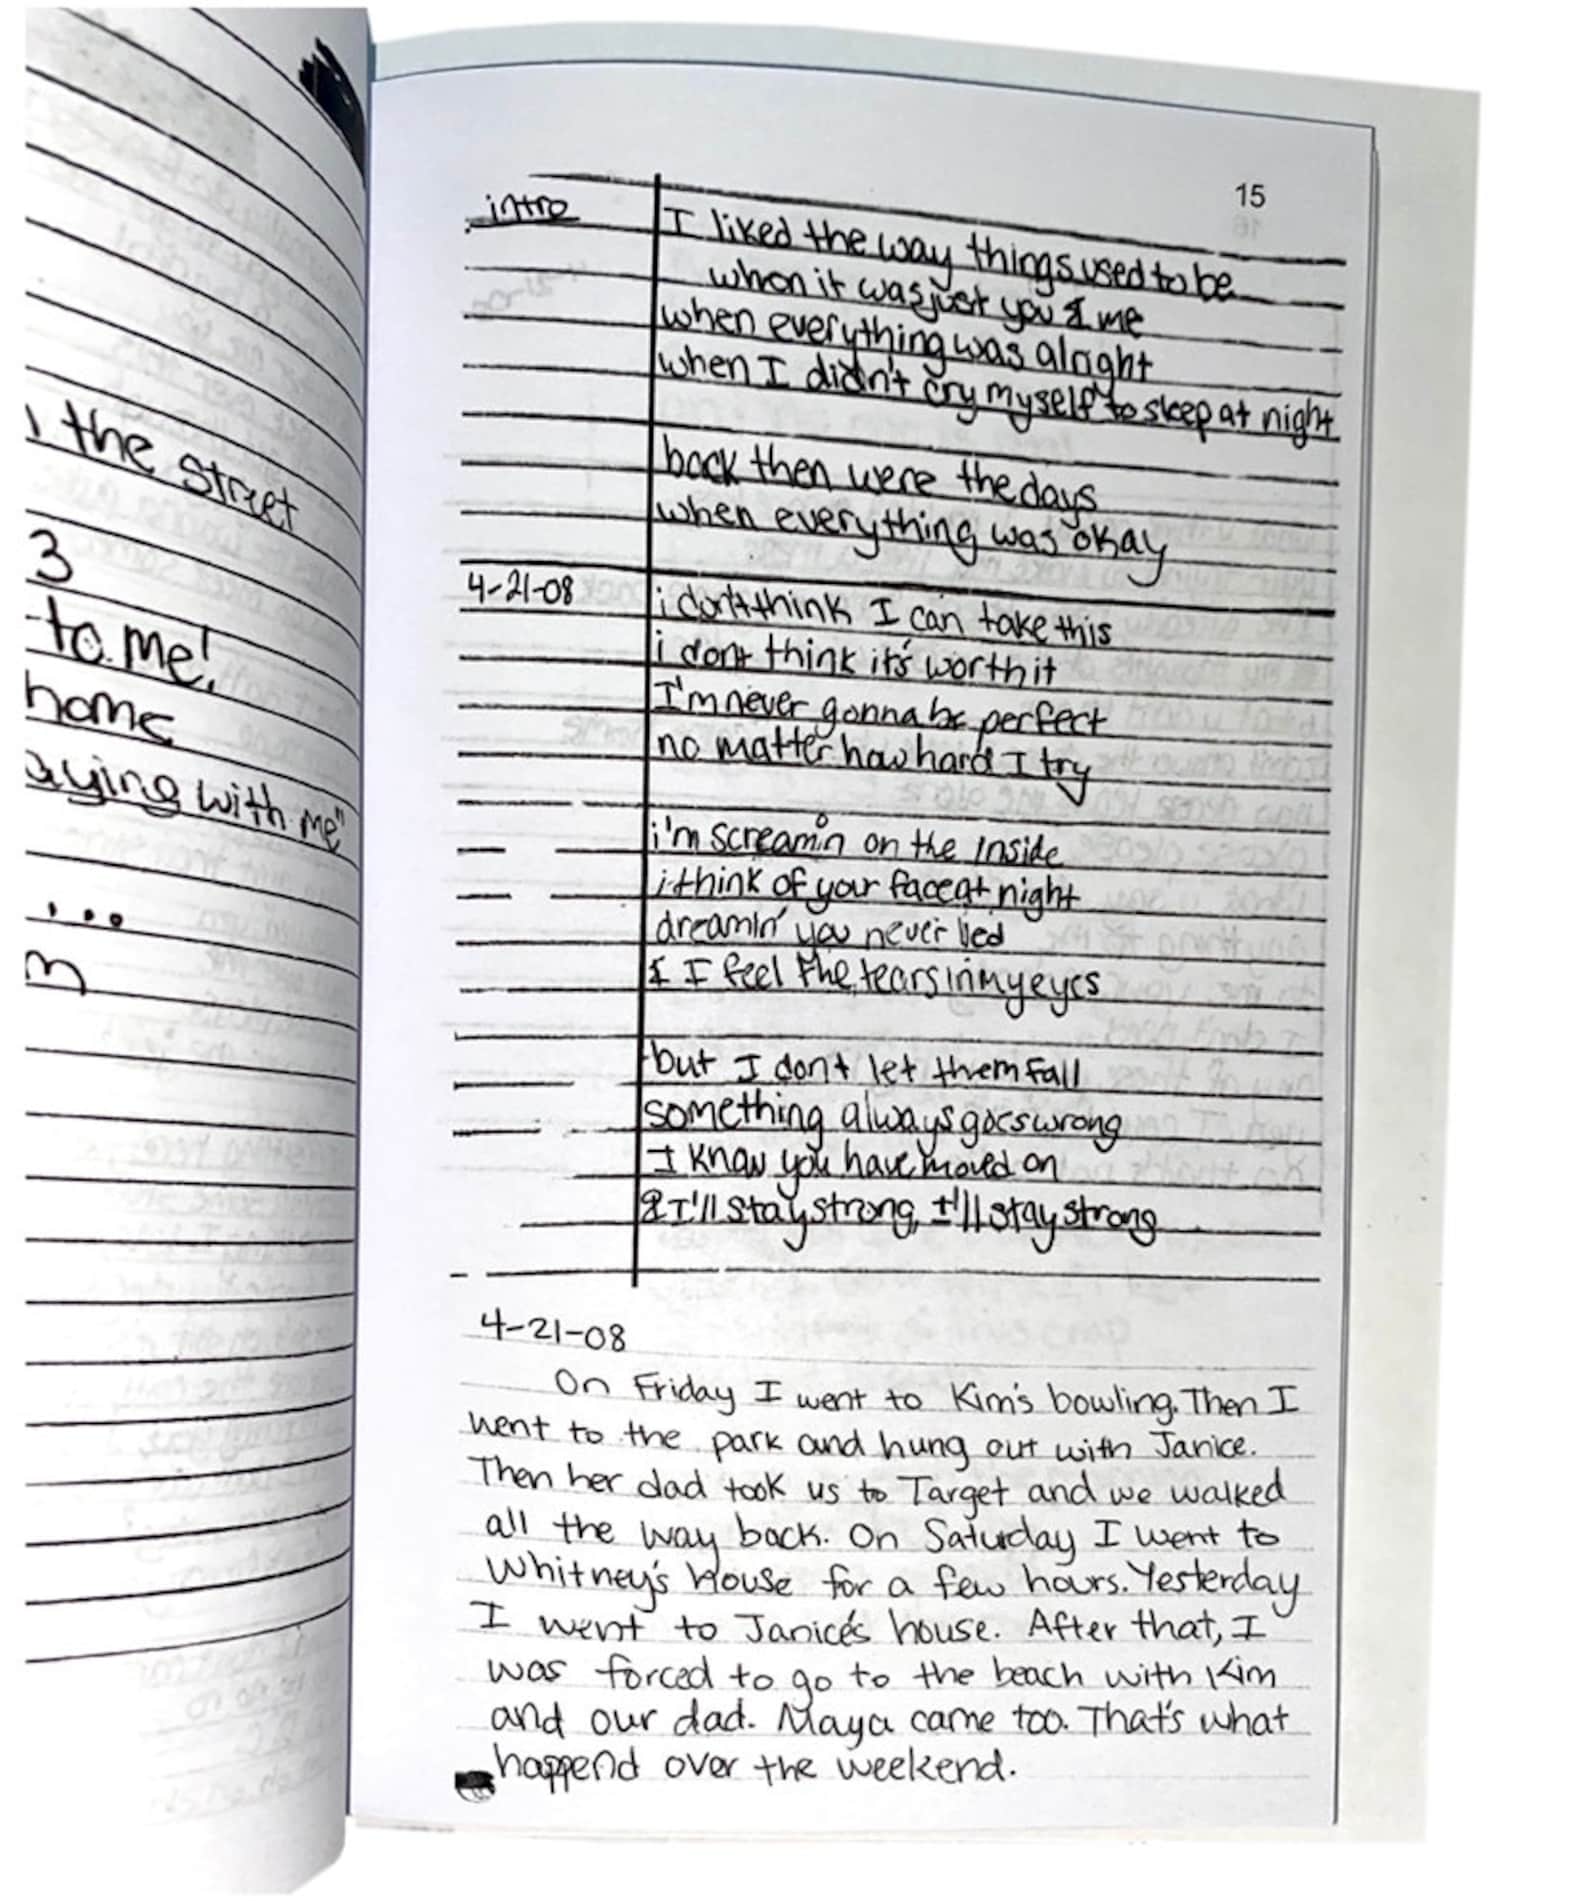 the street
3
to me!
home
with me"
...
15
intro
I liked the way things used to be
when it was just you & me
when everything was alright
when I didn't cry myself to sleep at night
back then were the days
when everything was okay
4-21-08
i don't think I can take this
i dont think it's worth it
I'm never gonna be perfect
no matter how hard I try
i'm screamin on the inside
i think of your face at night
dreamin' you never lied
& I feel the tears in my eyes
but I dont let them fall
something always goes wrong
I know you have moved on
& I'll stay strong, I'll stay strong
4-21-08
On Friday I went to Kim's bowling. Then I
went to the park and hung out with Janice.
Then her dad took us to Target and we walked
all the way back. On Saturday I went to
Whitney's house for a few hours. Yesterday
I went to Janice's house. After that, I
was forced to go to the beach with Kim
and our dad. Maya came too. That's what
happend over the weekend.